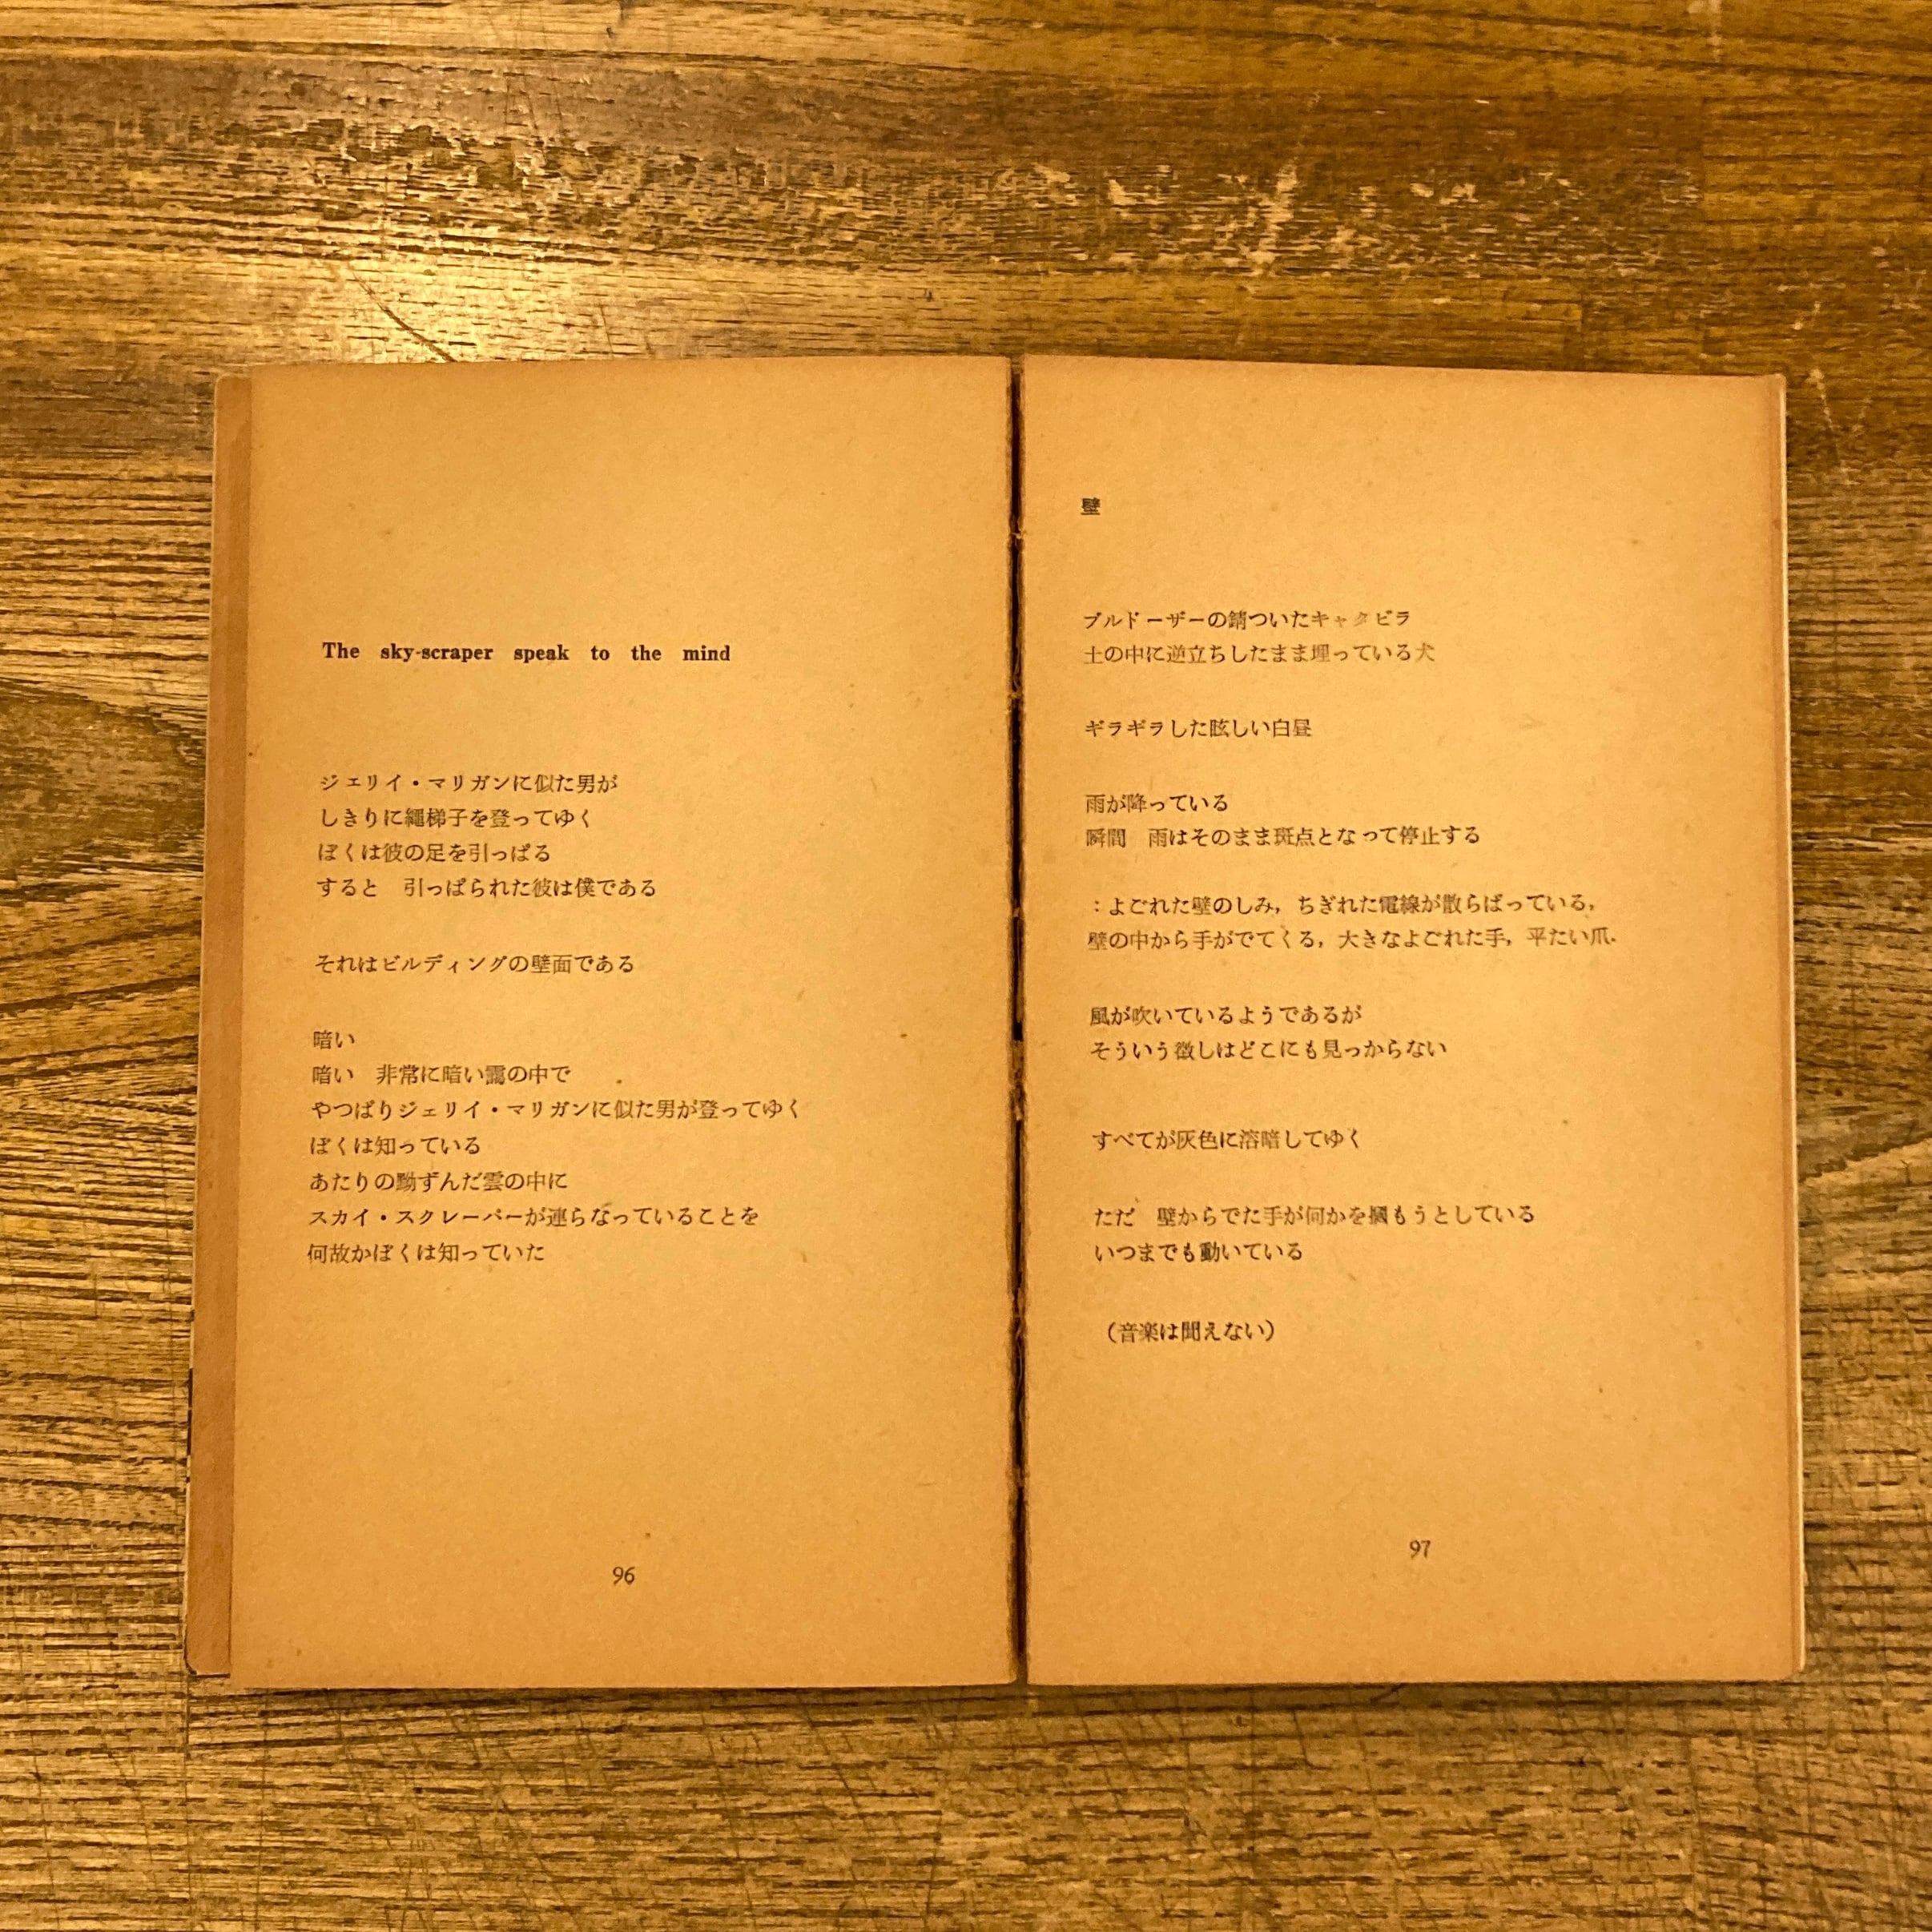 The sky-scraper speak to the mind
ジェリイ・マリガンに似た男が
しきりに繩梯子を登ってゆく
ぼくは彼の足を引っぱる
すると　引っぱられた彼は僕である
それはビルディングの壁面である
暗い
暗い　非常に暗い靄の中で
やつぱりジェリイ・マリガンに似た男が登ってゆく
ぼくは知っている
あたりの黝ずんだ雲の中に
スカイ・スクレーパーが連らなっていることを
何故かぼくは知っていた
96
壁
ブルドーザーの錆ついたキャタピラ
土の中に逆立ちしたまま埋っている犬
ギラギラした眩しい白昼
雨が降っている
瞬間　雨はそのまま斑点となって停止する
：よごれた壁のしみ，ちぎれた電線が散らばっている，
壁の中から手がでてくる，大きなよごれた手，平たい爪．
風が吹いているようであるが
そういう徴しはどこにも見っからない
すべてが灰色に溶暗してゆく
ただ　壁からでた手が何かを摑もうとしている
いつまでも動いている
（音楽は聞えない）
97